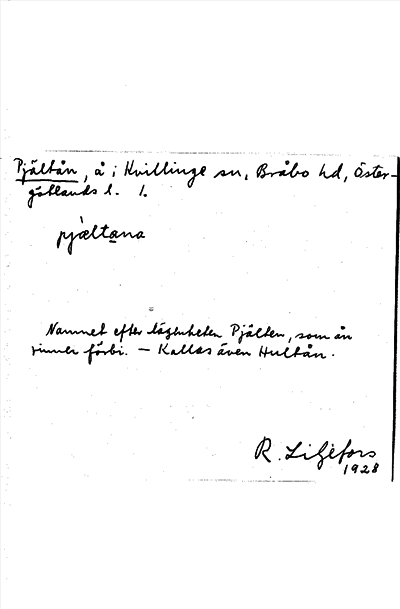 Pjältån, å i Kvillinge sn, Bråbo hd, Öster-
götlands l. 1.
pjæ̀ltana
Namnet efter lägenheten Pjälten, som ån
rinner förbi. — Kallas även Hultån.
R. Liljefors
1928